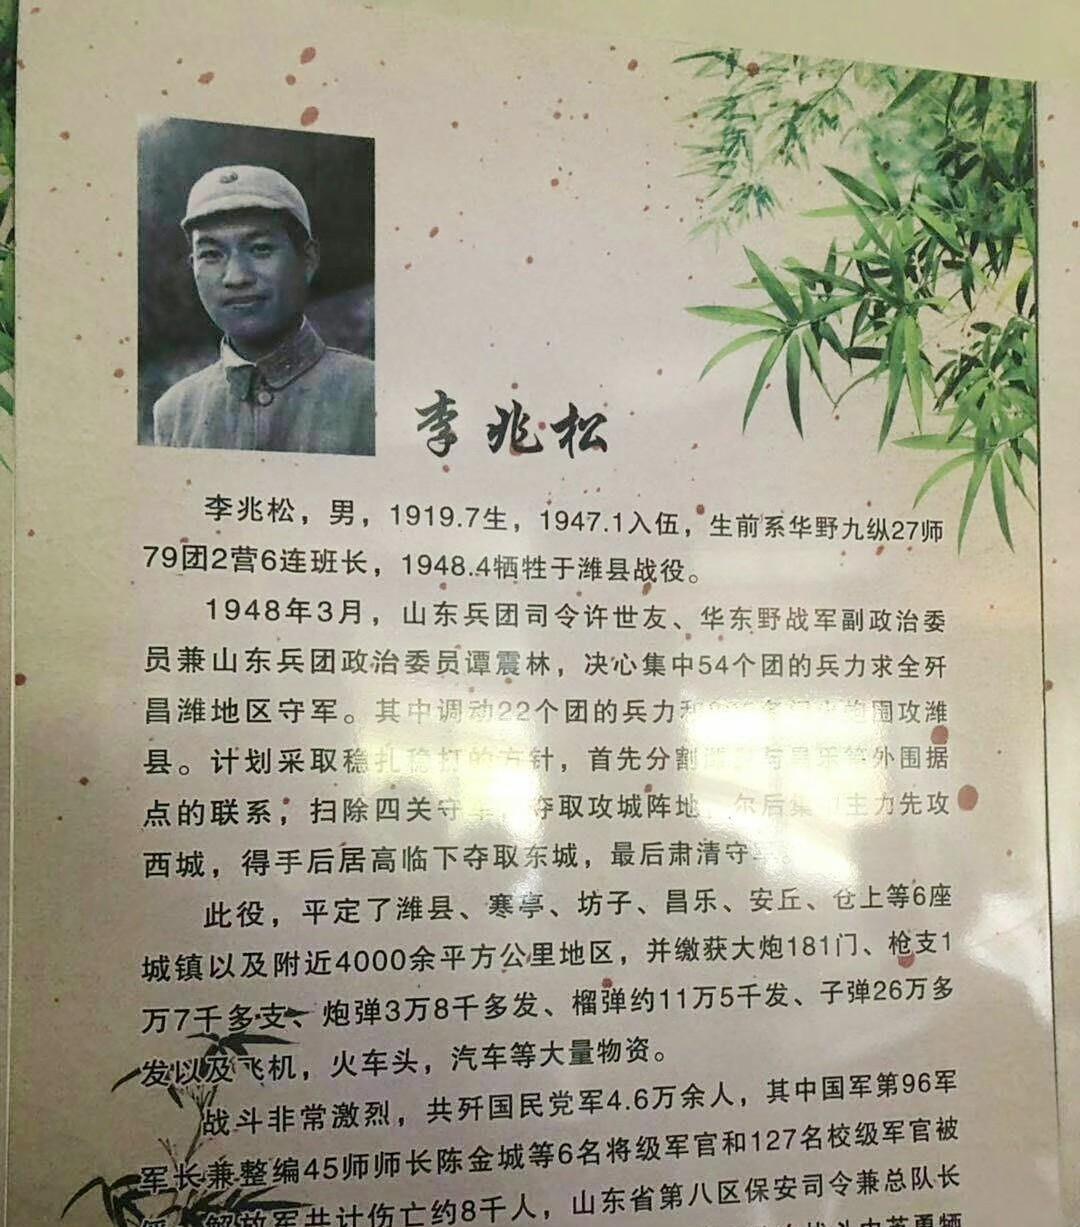 李兆松
李兆松，男，1919.7生，1947.1入伍，生前系华野九纵27师
79团2营6连班长，1948.4牺牲于潍县战役。
1948年3月，山东兵团司令许世友、华东野战军副政治委
员兼山东兵团政治委员谭震林，决心集中54个团的兵力求全歼
昌潍地区守军。其中调动22个团的兵力和 围攻潍
县。计划采取稳扎稳打的方针，首先分割 与昌乐等外围据
点的联系；扫除四关守军，夺取攻城阵地，尔后集 主力先攻
西城，得手后居高临下夺取东城，最后肃清守
此役，平定了潍县、寒亭、坊子、昌乐、安丘、仓上等6座
城镇以及附近4000余平方公里地区，并缴获大炮181门、枪支1
万7千多支、炮弹3万8千多发、榴弹约11万5千发、子弹26万多
发以及飞机，火车头，汽车等大量物资。
战斗非常激烈，共歼国民党军4.6万余人，其中国军第96军
军长兼整编45师师长陈金城等6名将级军官和127名校级军官被
解放军共计伤亡约8千人，山东省第八区保安司令兼总队长